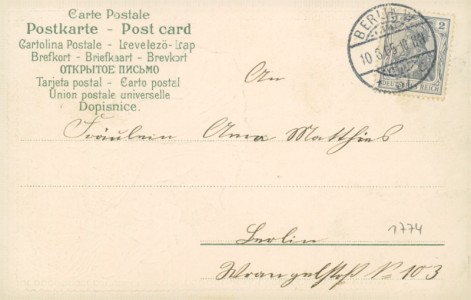 Carte Postale
Postkarte - Post card
Cartolina Postale - Levelező-Lap
Brefkort - Briefkaart - Brevkort
ОТКРЫТОЕ ПИСЬМО
Tarjeta postal - Carto postel
Union postale universelle
Dopisnice.
BERLIN
2
DEUTSCHES REICH
An
Fräulein Anna Matthies
1774
Berlin
Wrangelstr. No 103